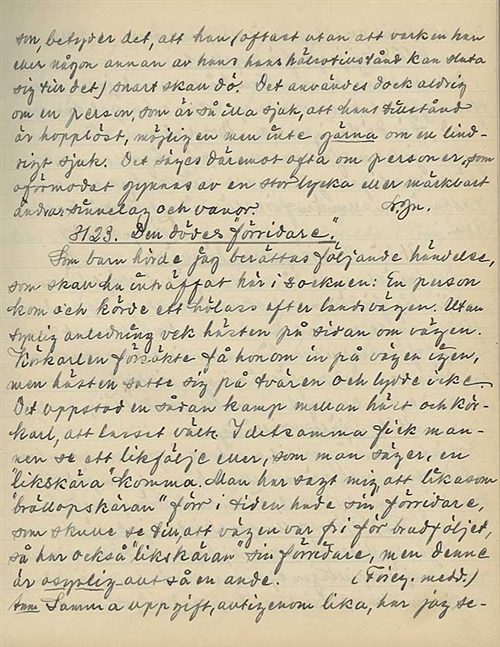 son, betyder det, att han (oftast utan att varken han
eller någon annan av hans hälsotillstånd kan sluta
sig till det) snart skall dö. Det användes dock aldrig
om en person, som är så illa sjuk, att hans tillstånd
är hopplöst, möjligen men inte gärna om en lind-
rigt sjuk. Det säges däremot ofta om personer, som
oförmodat gynnas av en stor lycka eller märkbart
ändrar sinnelag och vanor.
3123. Den dödes förridare."
Som barn hörde jag berättas följande händelse,
som skall ha inträffat här i socknen: En person
kom och körde ett hölass efter landsvägen. Utan
synlig anledning vek hästen på sidan om vägen.
Körkarlen försökte få honom in på vägen igen,
men hästen satte sig på tvären och lydde icke.
Det uppstod en sådan kamp mellan häst och kör-
karl, att lasset välte. I detsamma fick man-
nen se ett likfölje eller, som man säger, en
"likskara" komma. Man har sagt mig att likasom
"bröllopskaran" förr i tiden hade sin förridare,
som skulle se till att vägen var fri för brudföljet,
så har också "likskaran" sin förridare, men denne
är osynlig – allt så en ande. (Föreg. medd.)
Anm Samma uppgift, alltigenom lika, har jag se-